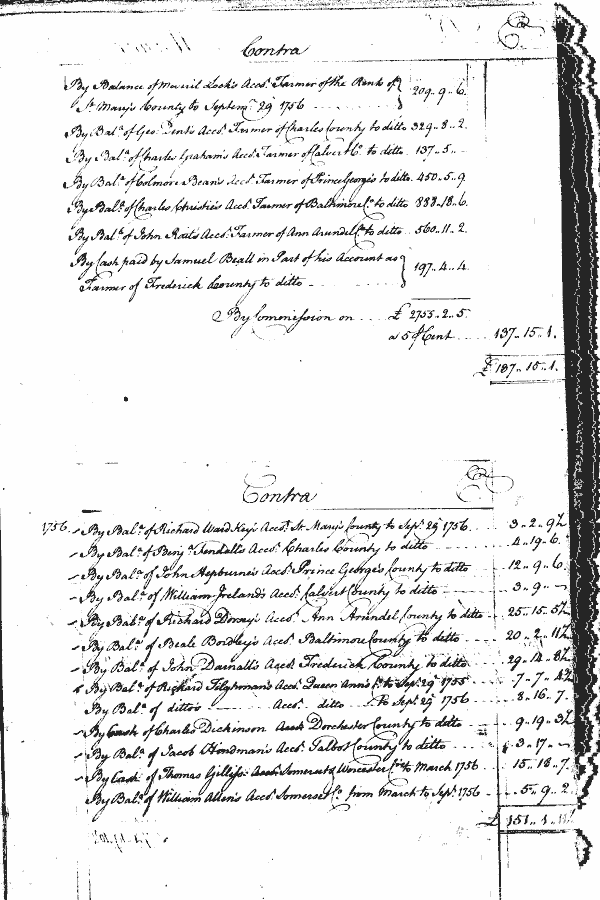 Contra Cr
By Balance of Maveril Lock's Acct. Farmer of the Rents of
St. Mary's County to Septemr. 29 1756 209.. 9.. 6.
By Bala. of Geo: Dent's Acct. Farmer of Charles County to ditto 329.. 8.. 2.
By Bala. of Charles Graham's Acct. Farmer of Calvert Co. to ditto 137.. 5.. -
By Bala. of Colmore Bean's Acct. Farmer of Prince George's to ditto 450.. 5.. 9.
By Bala. of Charles Christie's Acct. Farmer of Baltimore Co. to ditto 888.. 18.. 6.
By Bala. of John Rait's Acct. Farmer of Ann Arundel Co. to ditto 560.. 11.. 2.
By Cash paid by Samuel Beall in Part of his Account as
Farmer of Frederick County to ditto 197.. 4.. 4.
By Commission on £ 2755.. 2.. 5.
a 5 ⅌ Cent 137.. 15.. 1.
£ 137.. 15.. 1.
Contra Cr
1756 By Bala. of Richard Ward Key's Acct. St. Mary's County to Sepr. 29 1756 3.. 2.. 9½
By Bala. of Benja. Fendall's Acct. Charles County to ditto 4.. 19.. 6.
By Bala. of John Hepburne's Acct. Prince George's County to ditto 12.. 9.. 6.
By Bala. of William Ireland's Acct. Calvert County to ditto 3.. 9.. -
By Bala. of Richard Dorsey's Acct. Ann Arundel County to ditto 25.. 15.. 5½
By Bala. of Beale Bordley's Acct. Baltimore County to ditto 20.. 2.. 11½
By Bala. of John Darnall's Acct. Frederick County to ditto 29.. 14.. 8½
By Bala. of Richard Tilghman's Acct. Queen Ann's Co. to Sepr. 29 1755 7.. 7.. 4½
By Bala. of ditto's Acct. ditto to Sepr. 29 1756 8.. 16.. 7.
By Cash of Charles Dickinson Acct Dorchester County to ditto 9.. 19.. 3½
By Bala. of Jacob Hindman's Acct. Talbot County to ditto 3.. 17.. -
By Cash of Thomas Gilliss: Acct Somerset & Worcester Co. to March 1756 15.. 18.. 7.
By Bala. of William Allen's Acct. Somerset Co. from March to Sepr. 1756 5.. 9.. 2
£ 151.. 1.. 11½